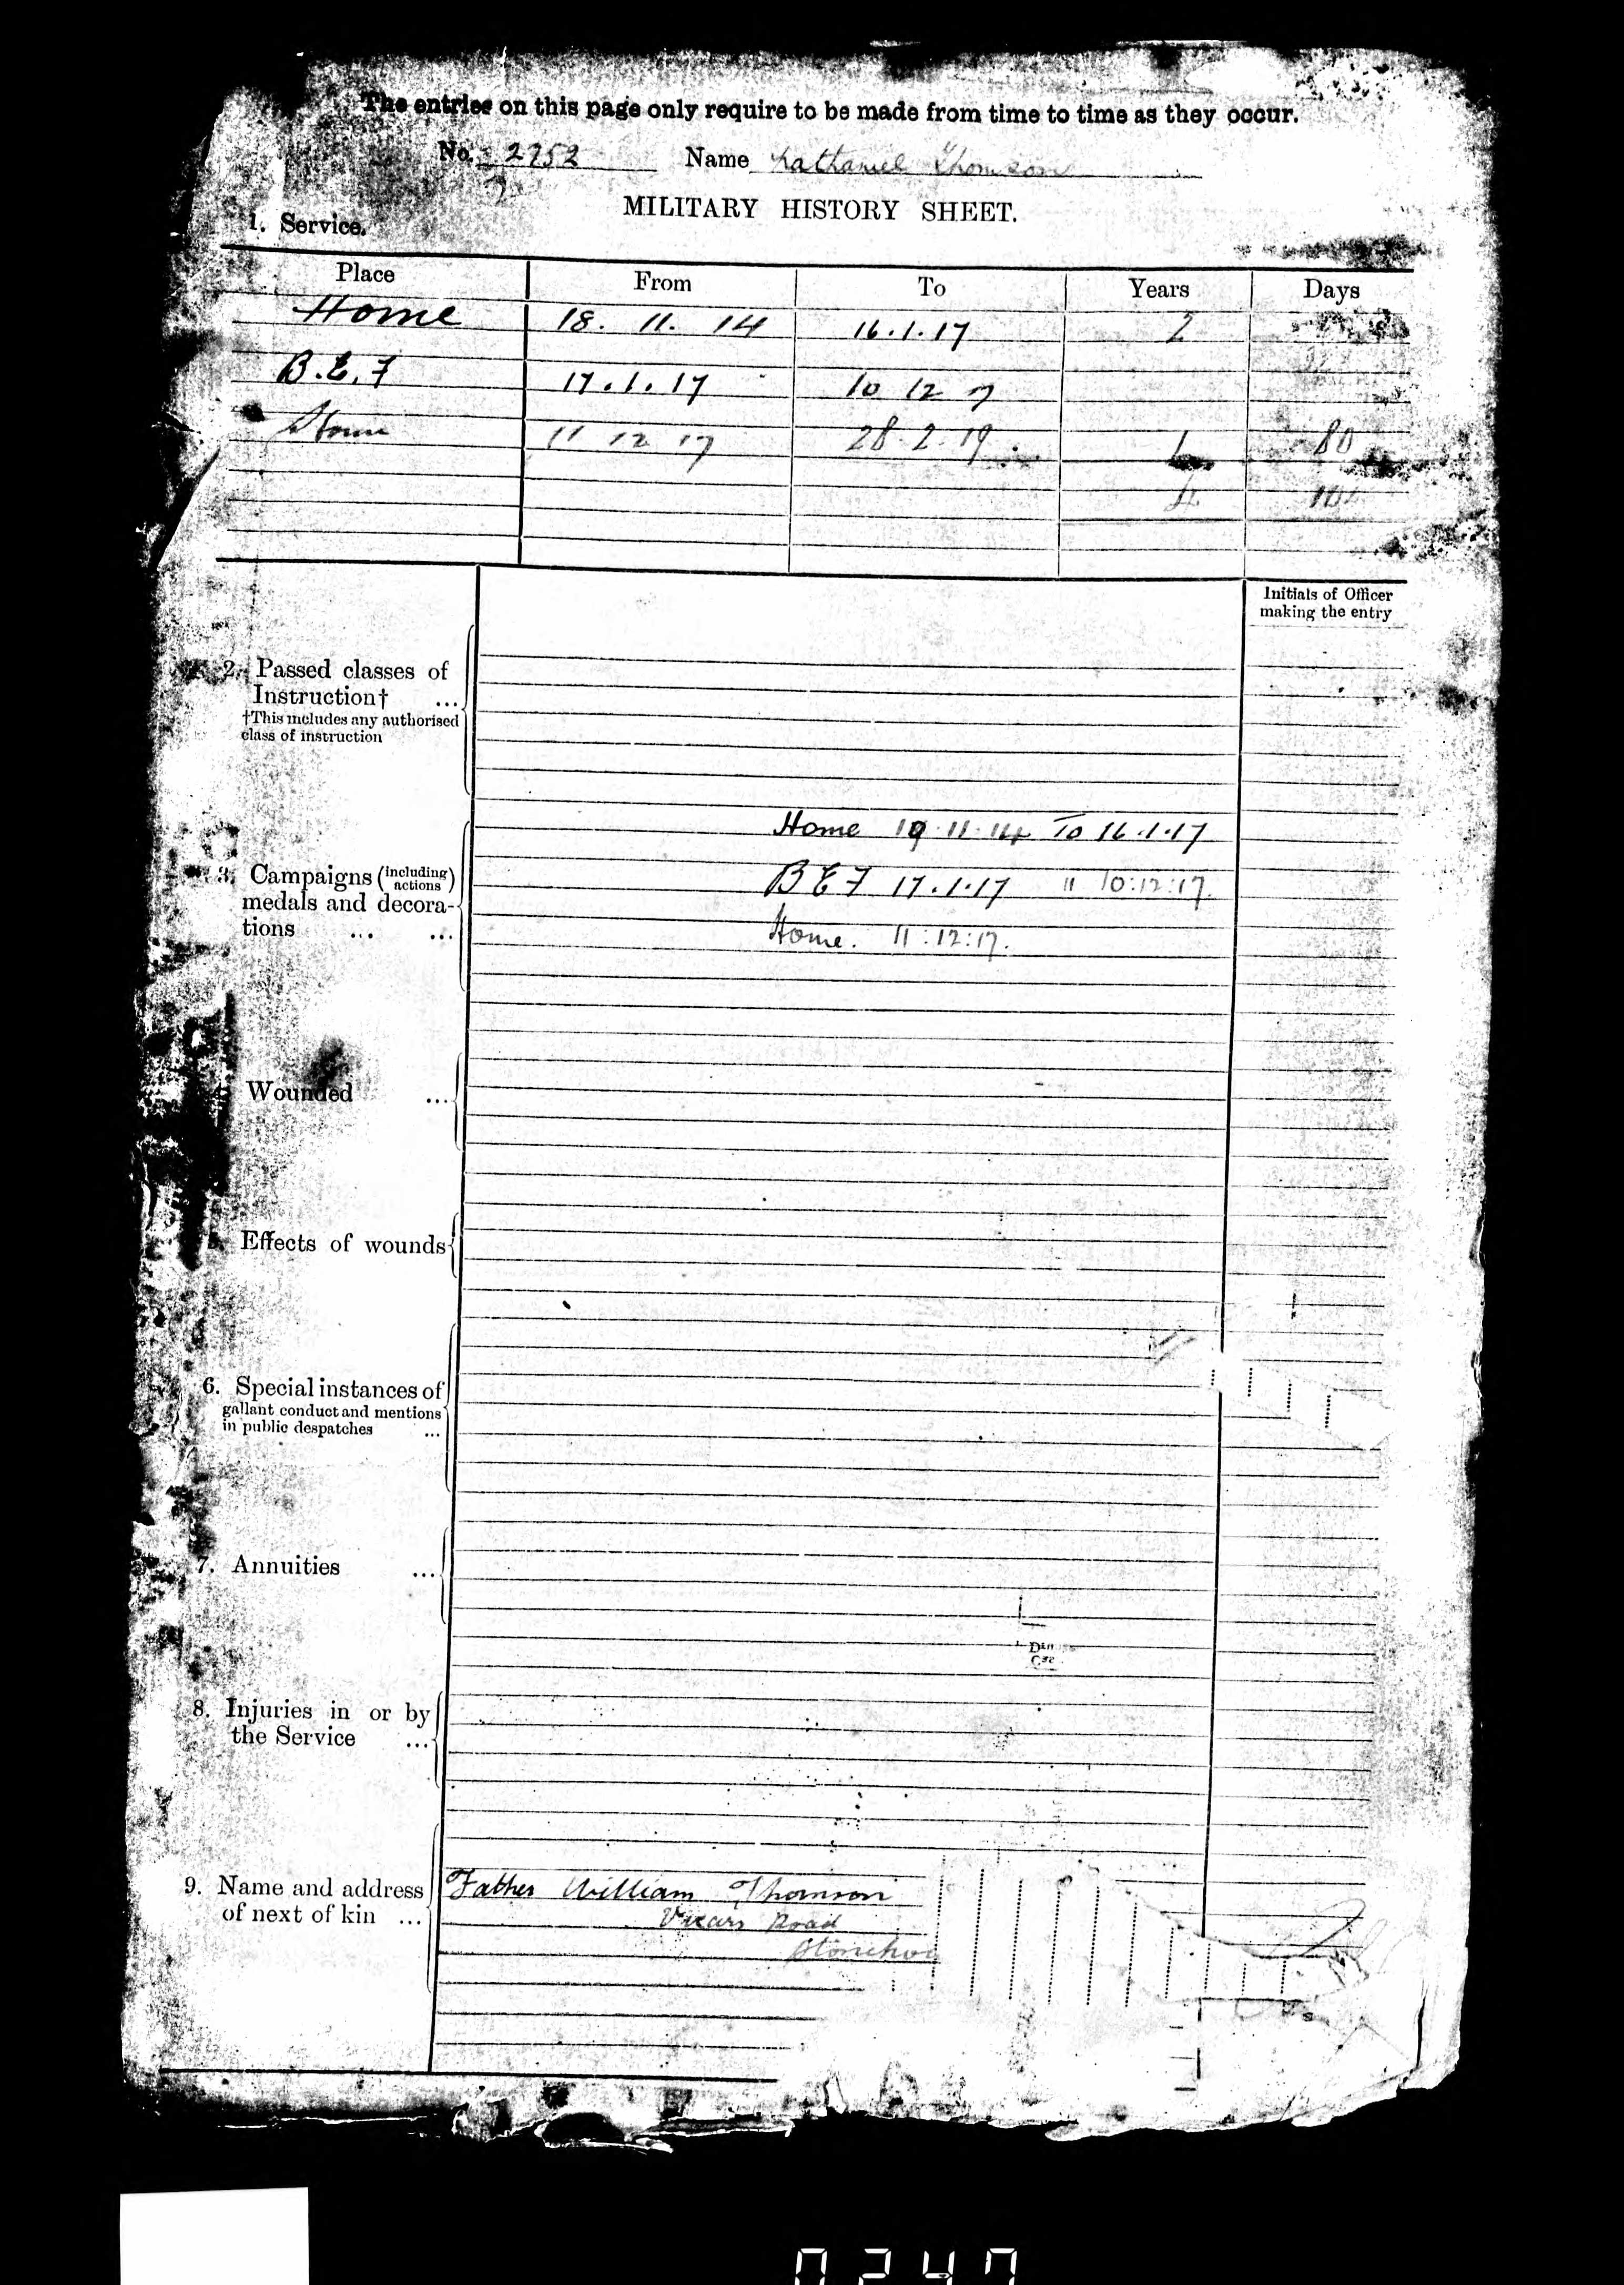 The entries on this page only require to be made from time to time as they occur.
No. 2752 Name Nathaniel Thomson
MILITARY HISTORY SHEET.
1. Service.
Place From To Years Days
Home 18. 11. 14 16.1.17 2
B.E.F 17.1.17 10 12 17
Home 11 12 17 28.2.19. 1 80
4
Initials of Officer
making the entry
2. Passed classes of
Instruction† ...
†This includes any authorised
class of instruction
Home 19.11.14 To 16.1.17
3. Campaigns (including actions) B E F 17.1.17 " 10:12:17.
medals and decora-
tions ... ... Home. 11:12:17.
Wounded ...
Effects of wounds
6. Special instances of
gallant conduct and mentions
in public despatches ...
7. Annuities ...
8. Injuries in or by
the Service ...
9. Name and address Father William Thomson
of next of kin ... Vicars Road
Stonehou
0247